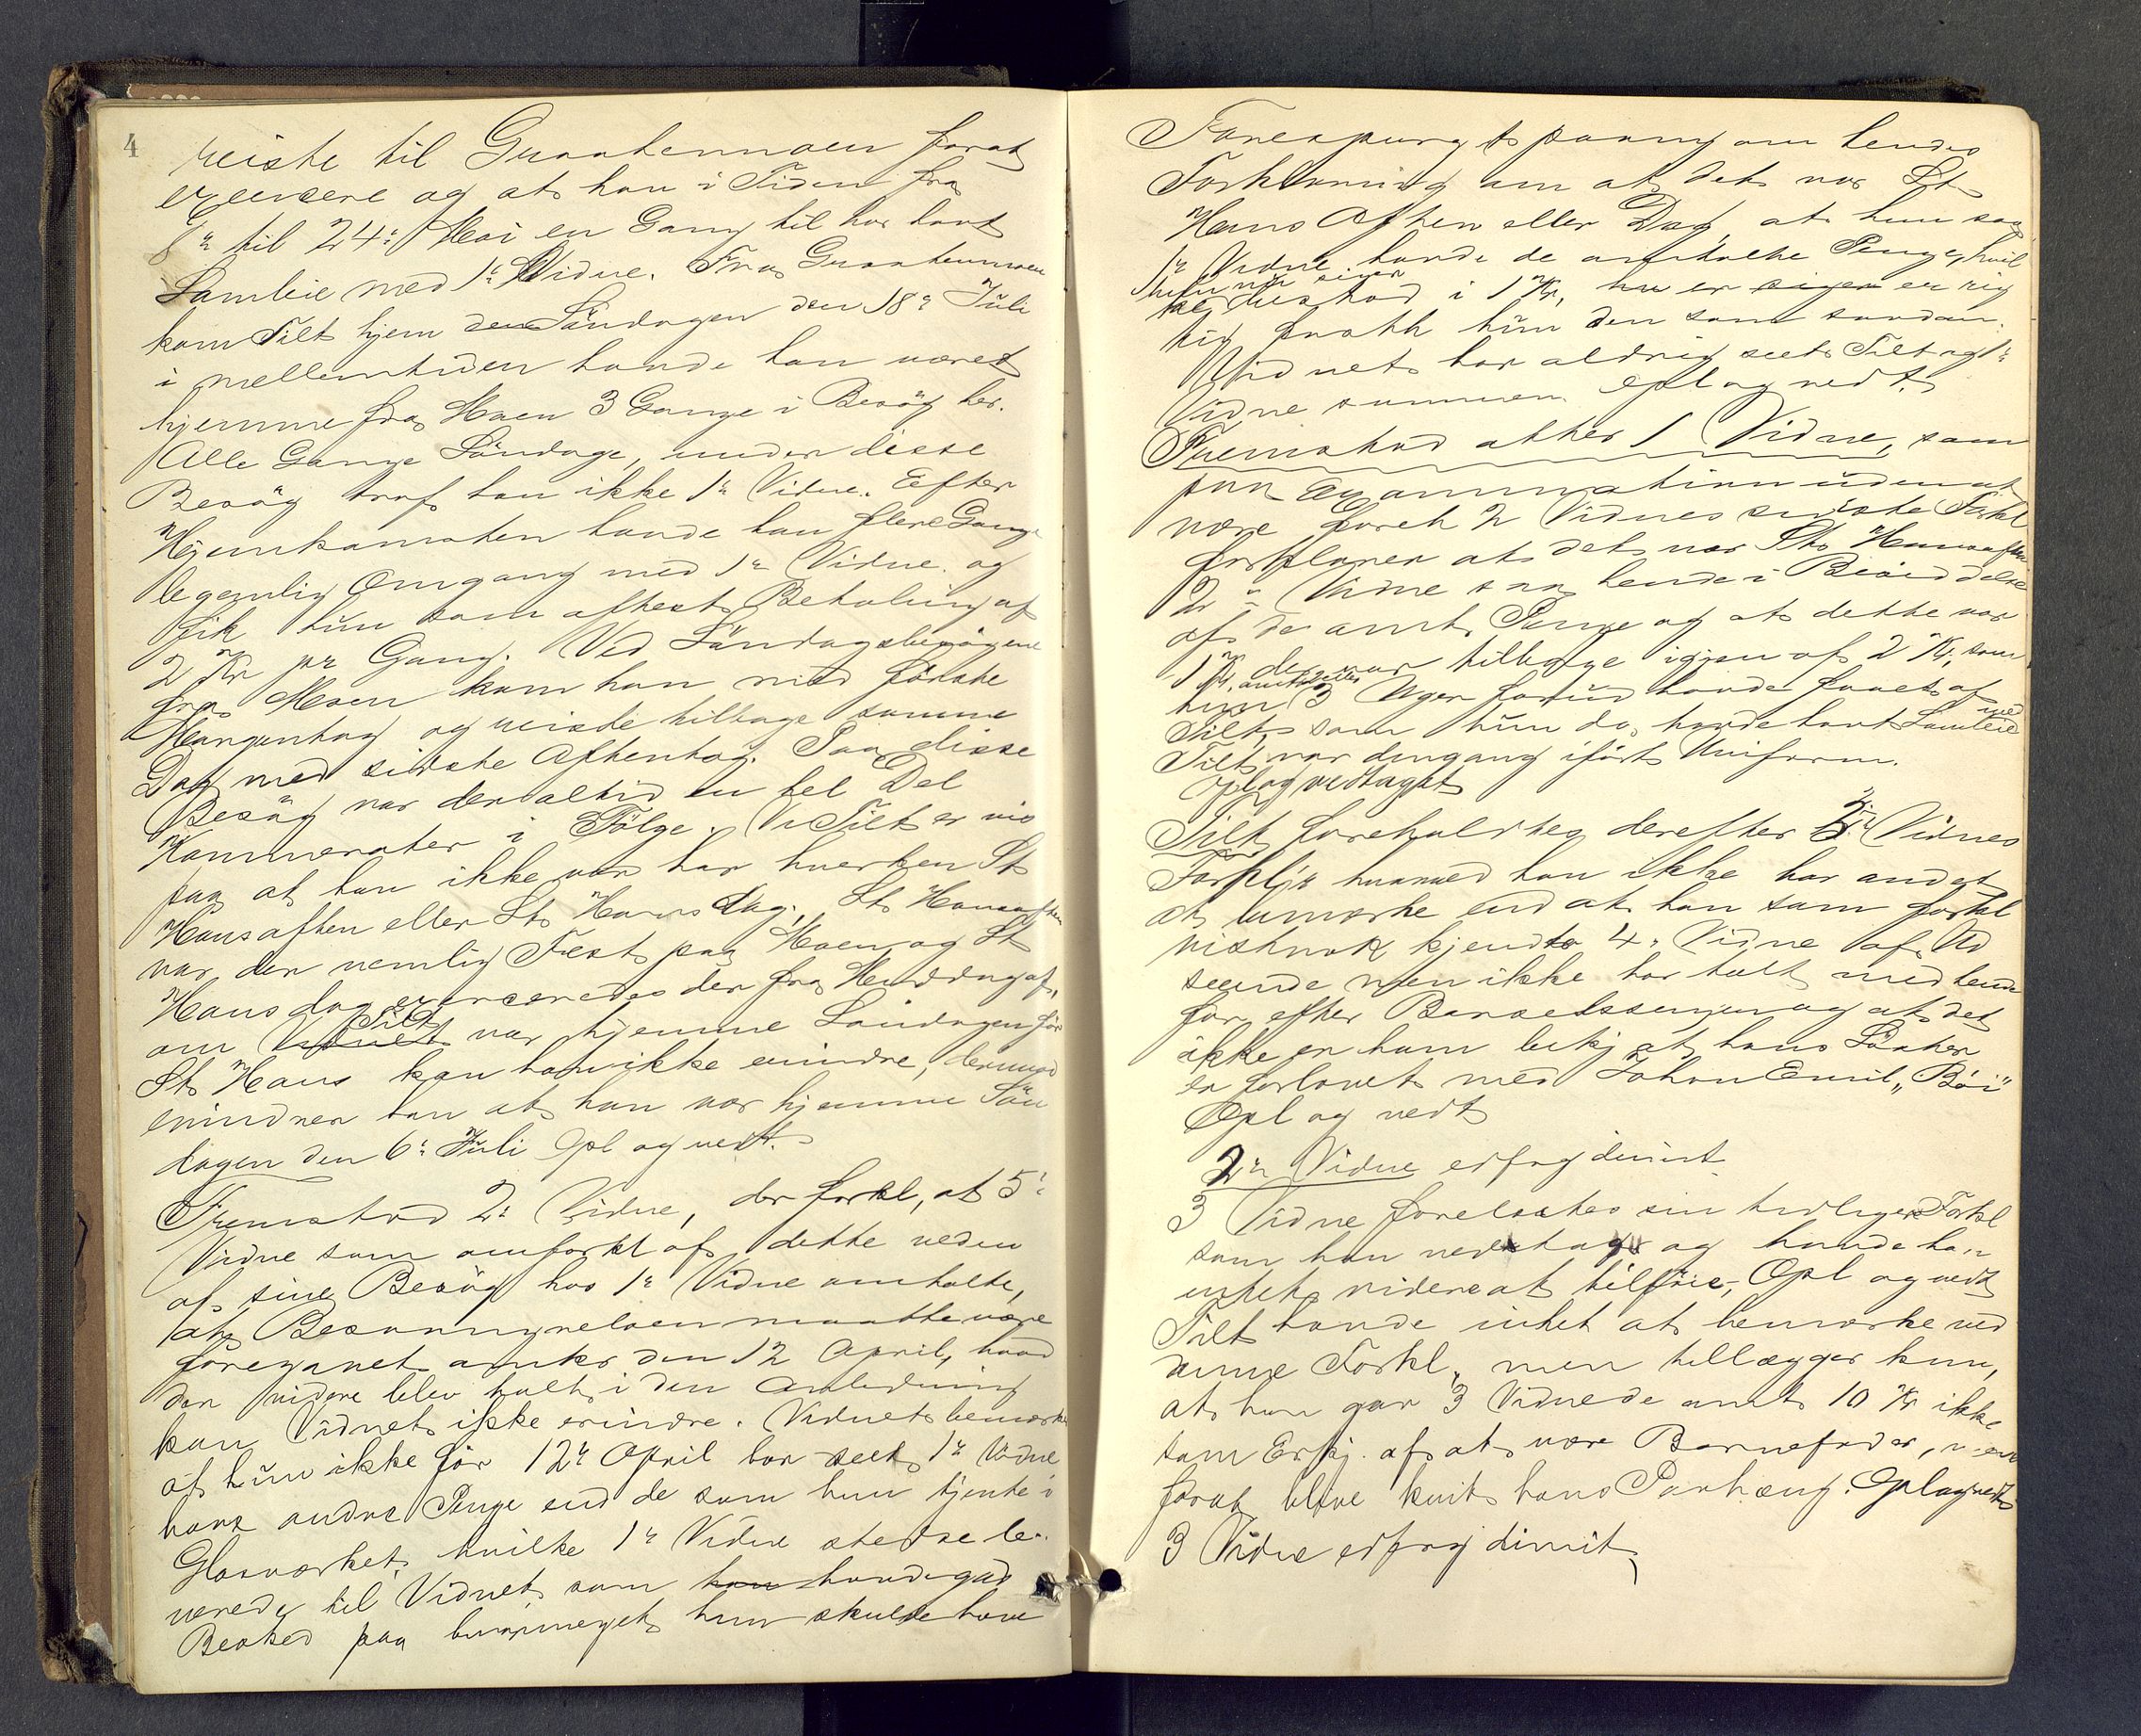 4
reiste til Graatenmoen forat
exercere og at han i Tiden fra
8de til 24de Mai en Gang til har havt
Samleie med 1ste Vidne. Fra Graatenmoen
kom Tilt hjem den Söndagen den 18de Juli
i mellemtiden havde han været
hjemme fra Moen 3 Gange i Besög her.
Alle Gange Söndage, under disse
Besög traf han ikke 1ste Vidne. Efter
Hjemkomsten havde han flere Gange
legemlig Omgang med 1ste Vidne. og
fik hun som oftest Betaling af
2 Kr pr Gang. Ved Söndagsbesögene
fra Moen kom han med förste
Morgentog og reiste tilbage samme
Dag med sidste Aftentog. Paa disse
Besög var der altid en hel Del
Kammerater i Fölge. Tilt er vis
paa at han ikke var her hverken St
Hansaften eller St Hans dag, St Hansaften
var der nemlig Fest paa Moen og St
Hans dag exerceredes der fra Middag af,
om Vidnet Tilt var hjemme Söndagen för
St Hans kan han ikke erindre, derimod
erindrer han at han var hjemme Sön
dagen den 6te Juli Opl og vedt.
Fremstod 2de Vidne, der forkl, at 5te
Vidne som omforkl af dette ved en
af sine Besög hos 1ste Vidne omtalte,
at Besvangrelsen maatte være
foregaaet omkr den 12 April, hvad
der videre blev talt i den Anledning
kan Vidnet ikke erindre. Vidnet bemærker
at hun ikke för 12te April har seet 1ste Vidne
have andre Penge end de som hun tjente i
Glasværket, hvilke 1ste Vidne stedse le-
verede til Vidnet, som han havde god
Besked paa hvormeget hun skulde have
Forespurgt paany om hendes
Forklaring om at det var St
Hans Aften eller Dag, at hun saa
1ste Vidne havde de omtalte Penge, hvil
ke bestod i 1 Kr, er rig
tig fastholdt hun den som saadan.
Vidnet har aldrig seet Tilt og 1ste
Vidne sammen. Opl og vedt.
Fremstod atter 1 Vidne, som
paa Examination uden at
være foreh 2 Vidnes sidste Forkl
forklarer at det var St Hansaften
2de Vidne saa hende i Besiddelse
af de omt. Penge og at dette var
1 Kr, der var tilbage igjen af 2 Kr, som
hun omtrent 3 Uger forud havde faaet af
Tilt, som hun da havde havt Samleie med
Tilt var dengang iført Uniform.
Opl og vedtaget
Tilt foreholdtes derefter Vidnes
Forkl, hvorved han ikke har andet
at bemærke end at han som forkl
vistnok kjendte 4de Vidne af Ud
seende men ikke har talt med hende
för efter Barselssengen og at det
ikke er ham bekj at hans Söster
er forlovet med Johan Emil „Böi"
Opl og vedt
2de Vidne erfrag dimit
3 Vidne forelæstes sin tidligere Forkl
som han vedtager og havde han
intet videre at tilföie, Opl og vedt
Tilt havde intet at bemærke ved
denne Forkl, men tillægger kun,
at han gav 3 Vidne de omt 10 Kr ikke
som Erkj. af at være Barnefader, men
forat blive kvit hans Paahæng. Opl og vedt
3 Vidne erfrag dimit